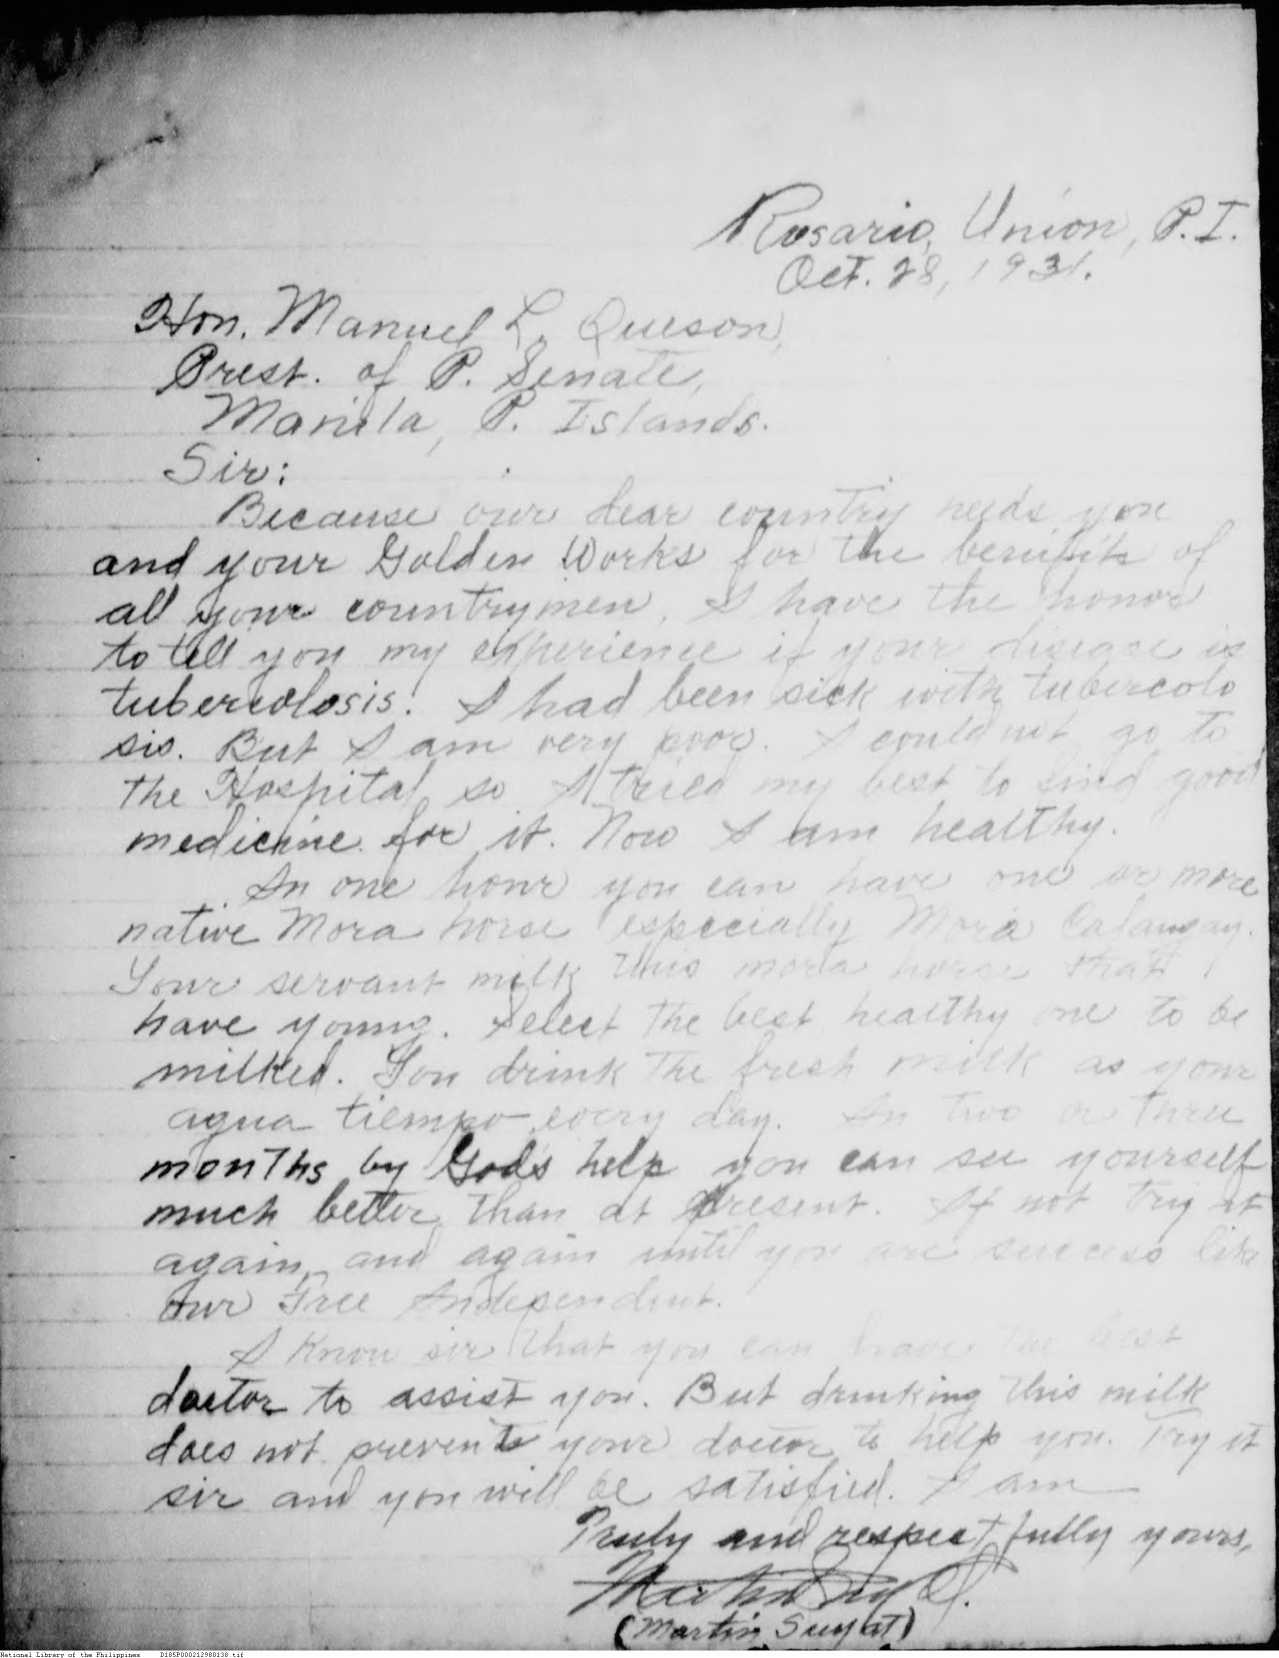 Rosario, Union, P.I.
Oct. 28, 1931.
Hon. Manuel L. Queson,
Prest. of P. Senate,
Manila, P. Islands.
Sir:
Because our dear country needs you
and your Golden Works for the benifits of
all your countrymen, I have the honor
to tell you my experience if your disease is
tubercolosis. I had been sick with tubercolo
sis. But I am very poor. I could not go to
the Hospital so I tried my best to find good
medicine for it. Now I am healthy.
In one hour you can have one or more
native Mora horse especially Mora Calangay.
Your servant milk this mora horse that
have young. Select the best healthy one to be
milked. You drink the fresh milk as your
agua tiempo every day. In two or three
months by God's help you can see yourself
much better than at present. If not try it
again, and again until you are success like
our Free Independent.
I know sir that you can have the best
doctor to assist you. But drinking this milk
does not prevent your doctor to help you. Try it
sir and you will be satisfied. I am
Truly and respectfully yours,
(Martin Suyat)
National Library of the Philippines D185P000212988138.tif